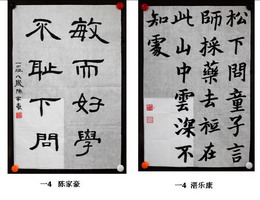 敏而好學
不耻下問
松下問童子言
師採藥去祇在
此山中雲深不
知處
一4 陈家豪
一4 湛乐康